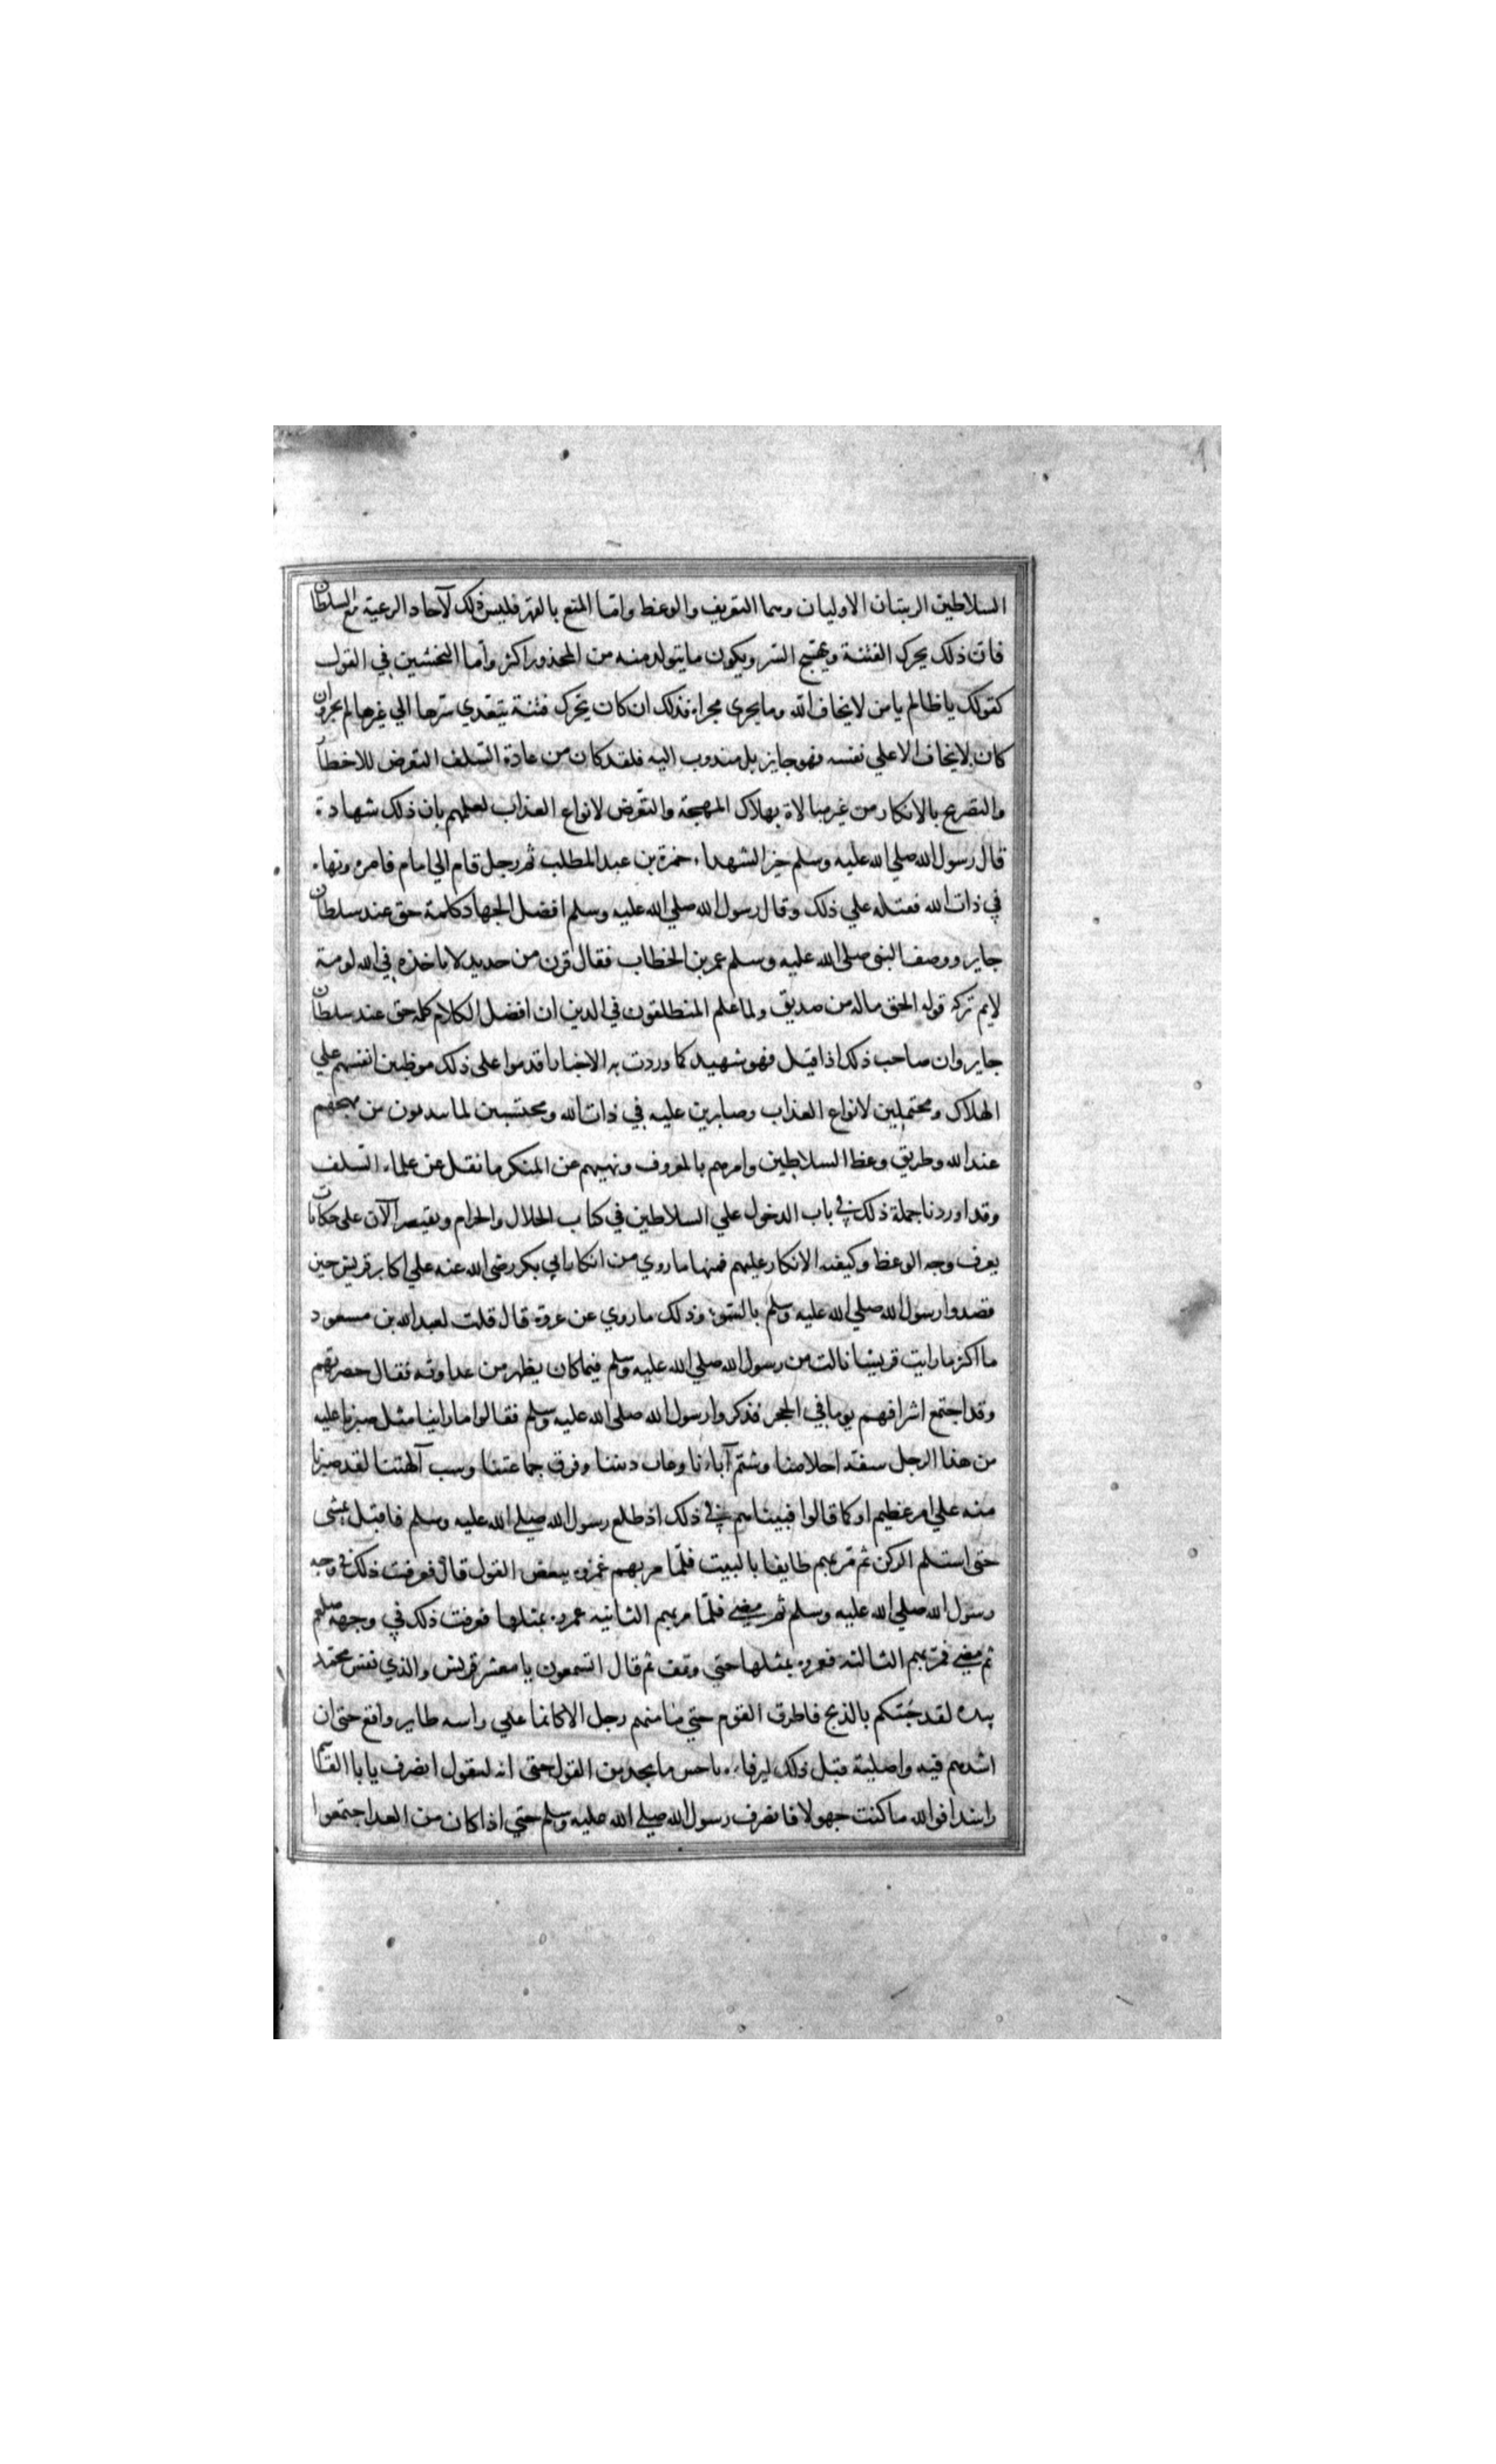 السلاطين الرتبتان الاوليان وهما التعريف والوعظ واما المنع بالقهر فليس ذلك لآحاد الرعية مع السلطان
فان ذلك يحرك الفتنة ويهيج الشر ويكون ما يتولد منه من المحذور اكثر واما التخشين في القول
كقولك يا ظالم يا من لا يخاف الله وما يجري مجراه فذلك ان كان يحرك فتنة يتعدي شرها الي غيرها لم يجز وان
كان لا يخاف الا علي نفسه فهو جايز بل مندوب اليه فلقد كان من عادة السلف التعرض للاخطار
والتصريح بالانكار من غير مبالاة بهلاك المهجة والتعرض لانواع العذاب لعلمهم بان ذلك شهادة
قال رسول الله صلي الله عليه وسلم خير الشهداء حمزة بن عبد المطلب ثم رجل قام الي امام فامره ونهاه
في ذات الله فقتله علي ذلك وقال رسول الله صلي الله عليه وسلم افضل الجهاد كلمة حق عند سلطان
جاير ووصف النبي صلي الله عليه وسلم عمر بن الخطاب فقال قرن من حديد لا ياخذه في الله لومة
لايم تركه قوله الحق ماله من صديق ولما علم المتطلقون في الدين ان افضل الكلام كلمة حق عند سلطان
جاير وان صاحب ذلك اذا قتل فهو شهيد كما وردت به الاخبار اقدموا علي ذلك موطنين انفسهم علي
الهلاك ومحتملين لانواع العذاب وصابرين عليه في ذات الله ومحتسبين لما يبذلون من مهجهم
عند الله وطريق وعظ السلاطين وامرهم بالمعروف ونهيهم عن المنكر ما نقل عن علماء السلف
وقد اوردنا جملة ذلك في باب الدخول علي السلاطين في كتاب الحلال والحرام ونقتصر الآن علي حكايات
يعرف وجه الوعظ وكيفية الانكار عليهم فمنها ما روي من انكار ابي بكر رضي الله عنه علي اكابر قريش حين
قصدوا رسول الله صلي الله عليه وسلم بالسوء وذلك ما روي عن عروة قال قلت لعبد الله بن مسعود
ما اكثر ما رايت قريشا نالت من رسول الله صلي الله عليه وسلم فيما كان يظهر من عداوته فقال حضرتهم
وقد اجتمع اشرافهم يوما في الحجر فذكروا رسول الله صلي الله عليه وسلم فقالوا ما راينا مثل صبرنا عليه
من هذا الرجل سفه احلامنا وشتم آباءنا وعاب ديننا وفرق جماعتنا وسب آلهتنا لقد صبرنا
منه علي امر عظيم او كما قالوا فبينا هم في ذلك اذ طلع رسول الله صلي الله عليه وسلم فاقبل يمشي
حتي استلم الركن ثم مر بهم طايفا بالبيت فلما مر بهم غمزوه ببعض القول قال فعرفت ذلك في وجه
رسول الله صلي الله عليه وسلم ثم مضي فلما مر بهم الثانية غمزوه بمثلها فعرفت ذلك في وجهه صلعم
ثم مضي فمر بهم الثالثة فغمزوه بمثلها حتي وقف ثم قال اتسمعون يا معشر قريش والذي نفس محمد
بيده لقد جئتكم بالذبح فاطرق القوم حتي ما منهم رجل الا كانما علي راسه طاير واقع حتي ان
اشدهم فيه واصلبة قبل ذلك ليرفاه باحسن ما يجد من القول حتي انه ليقول انصرف يا با القاسم
راشدا فوالله ما كنت جهولا فانصرف رسول الله صلي الله عليه وسلم حتي اذا كان من الغد اجتمعوا